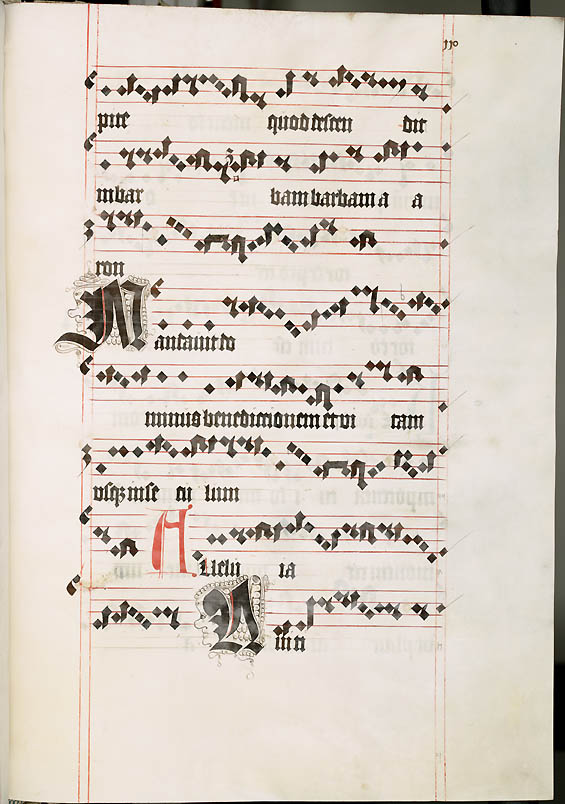 110
pite quod descen dit
in bar bam barbam a a
ron
Mandauit do
minus benedictionem et vi tam
vsqz in se cu lum
Allelu ia
Qui ti